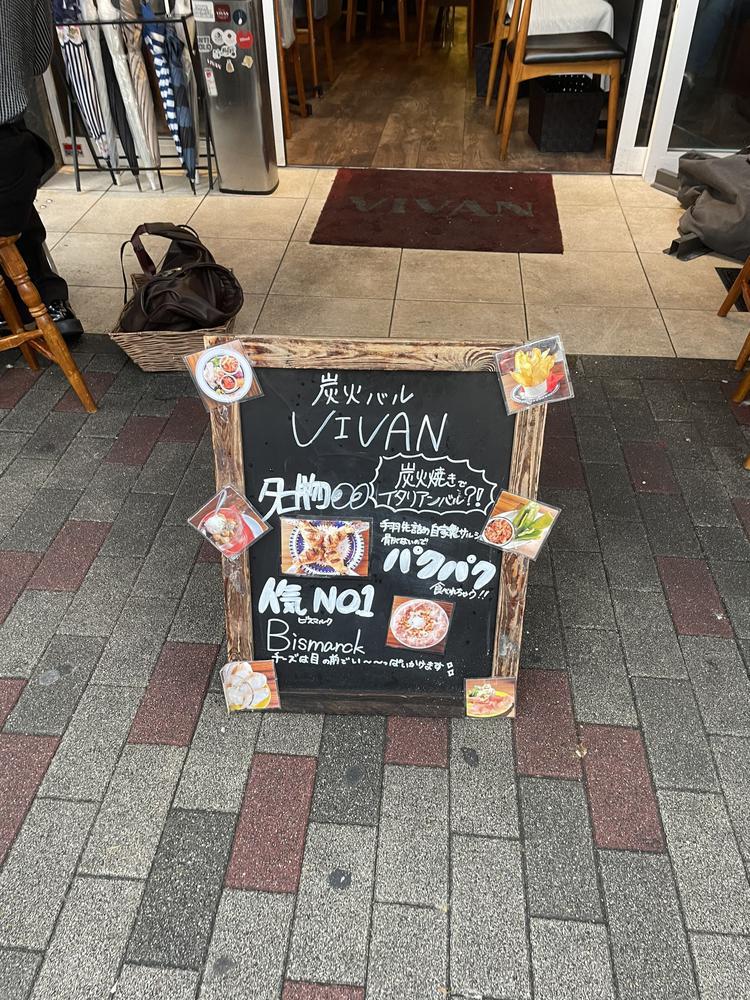 VIVAN
炭火バル
VIVAN
炭火焼きで
イタリアンバル?!
名物
手羽先詰め自家製サルシッ
骨がないので
パクパク
食べれちゃう!!
人気 NO1
ビスマルク
Bismarck
チーズは目の前でい〜〜っぱいかけます!!